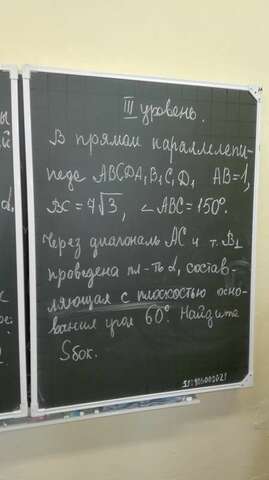 III уровень.
В прямом параллелепи-
педе ABCDA₁B₁C₁D₁ AB=1,
BC = 7√3, ∠ABC=150°.
Через диагональ AC и т. B₁
проведена пл-ть α, состав-
ляющая с плоскостью осно-
вания угол 60°. Найдите
Sбок.